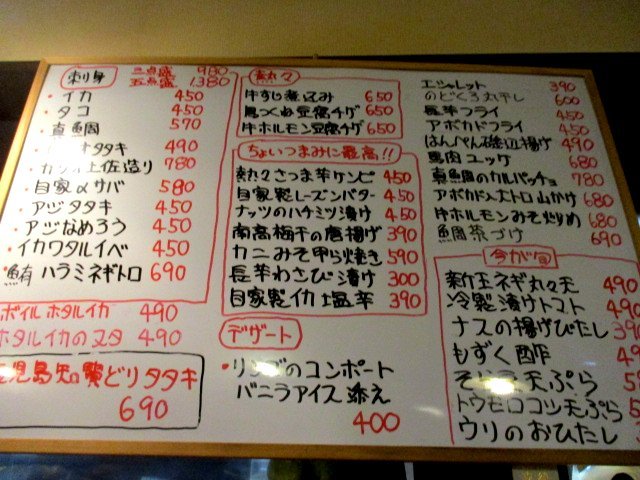 刺身 三点盛 980
五点盛 1,380
・イカ 450
・タコ 450
・真鯛 570
タタキ 490
土佐造り 780
・自家〆サバ 580
・アジタタキ 450
・アジなめろう 450
・イカワタルイベ 450
・鮪ハラミネギトロ 690
ボイルホタルイカ 490
ホタルイカのヌタ 490
児島 どりタタキ
690
熱々
牛すじ煮込み 650
鶏つくね豆腐チゲ 650
牛ホルモン豆腐チゲ 650
ちょいつまみに最高!!
熱々さつま芋ケンピ 450
自家製レーズンバター 450
ナッツのハチミツ漬け 450
南高梅干の唐揚げ 390
カニみそ甲ら焼き 590
長芋わさび漬け 300
自家製イカ塩辛 390
デザート
・リンゴのコンポート
バニラアイス添え
400
エシャレット 390
のどくろ丸干し 600
長芋フライ 450
アボカドフライ 450
はんぺん磯辺揚げ 490
馬肉ユッケ 680
真鯛のカルパッチョ 780
アボカド大トロ山かけ 680
牛ホルモンみそ炒め 680
鯛茶づけ 690
今が旬
新玉ネギ丸々天 490
冷製漬けトマト 490
ナスの揚げびたし
もずく酢
そら豆天ぷら
トウモロコシ天ぷら
ウリのおひたし